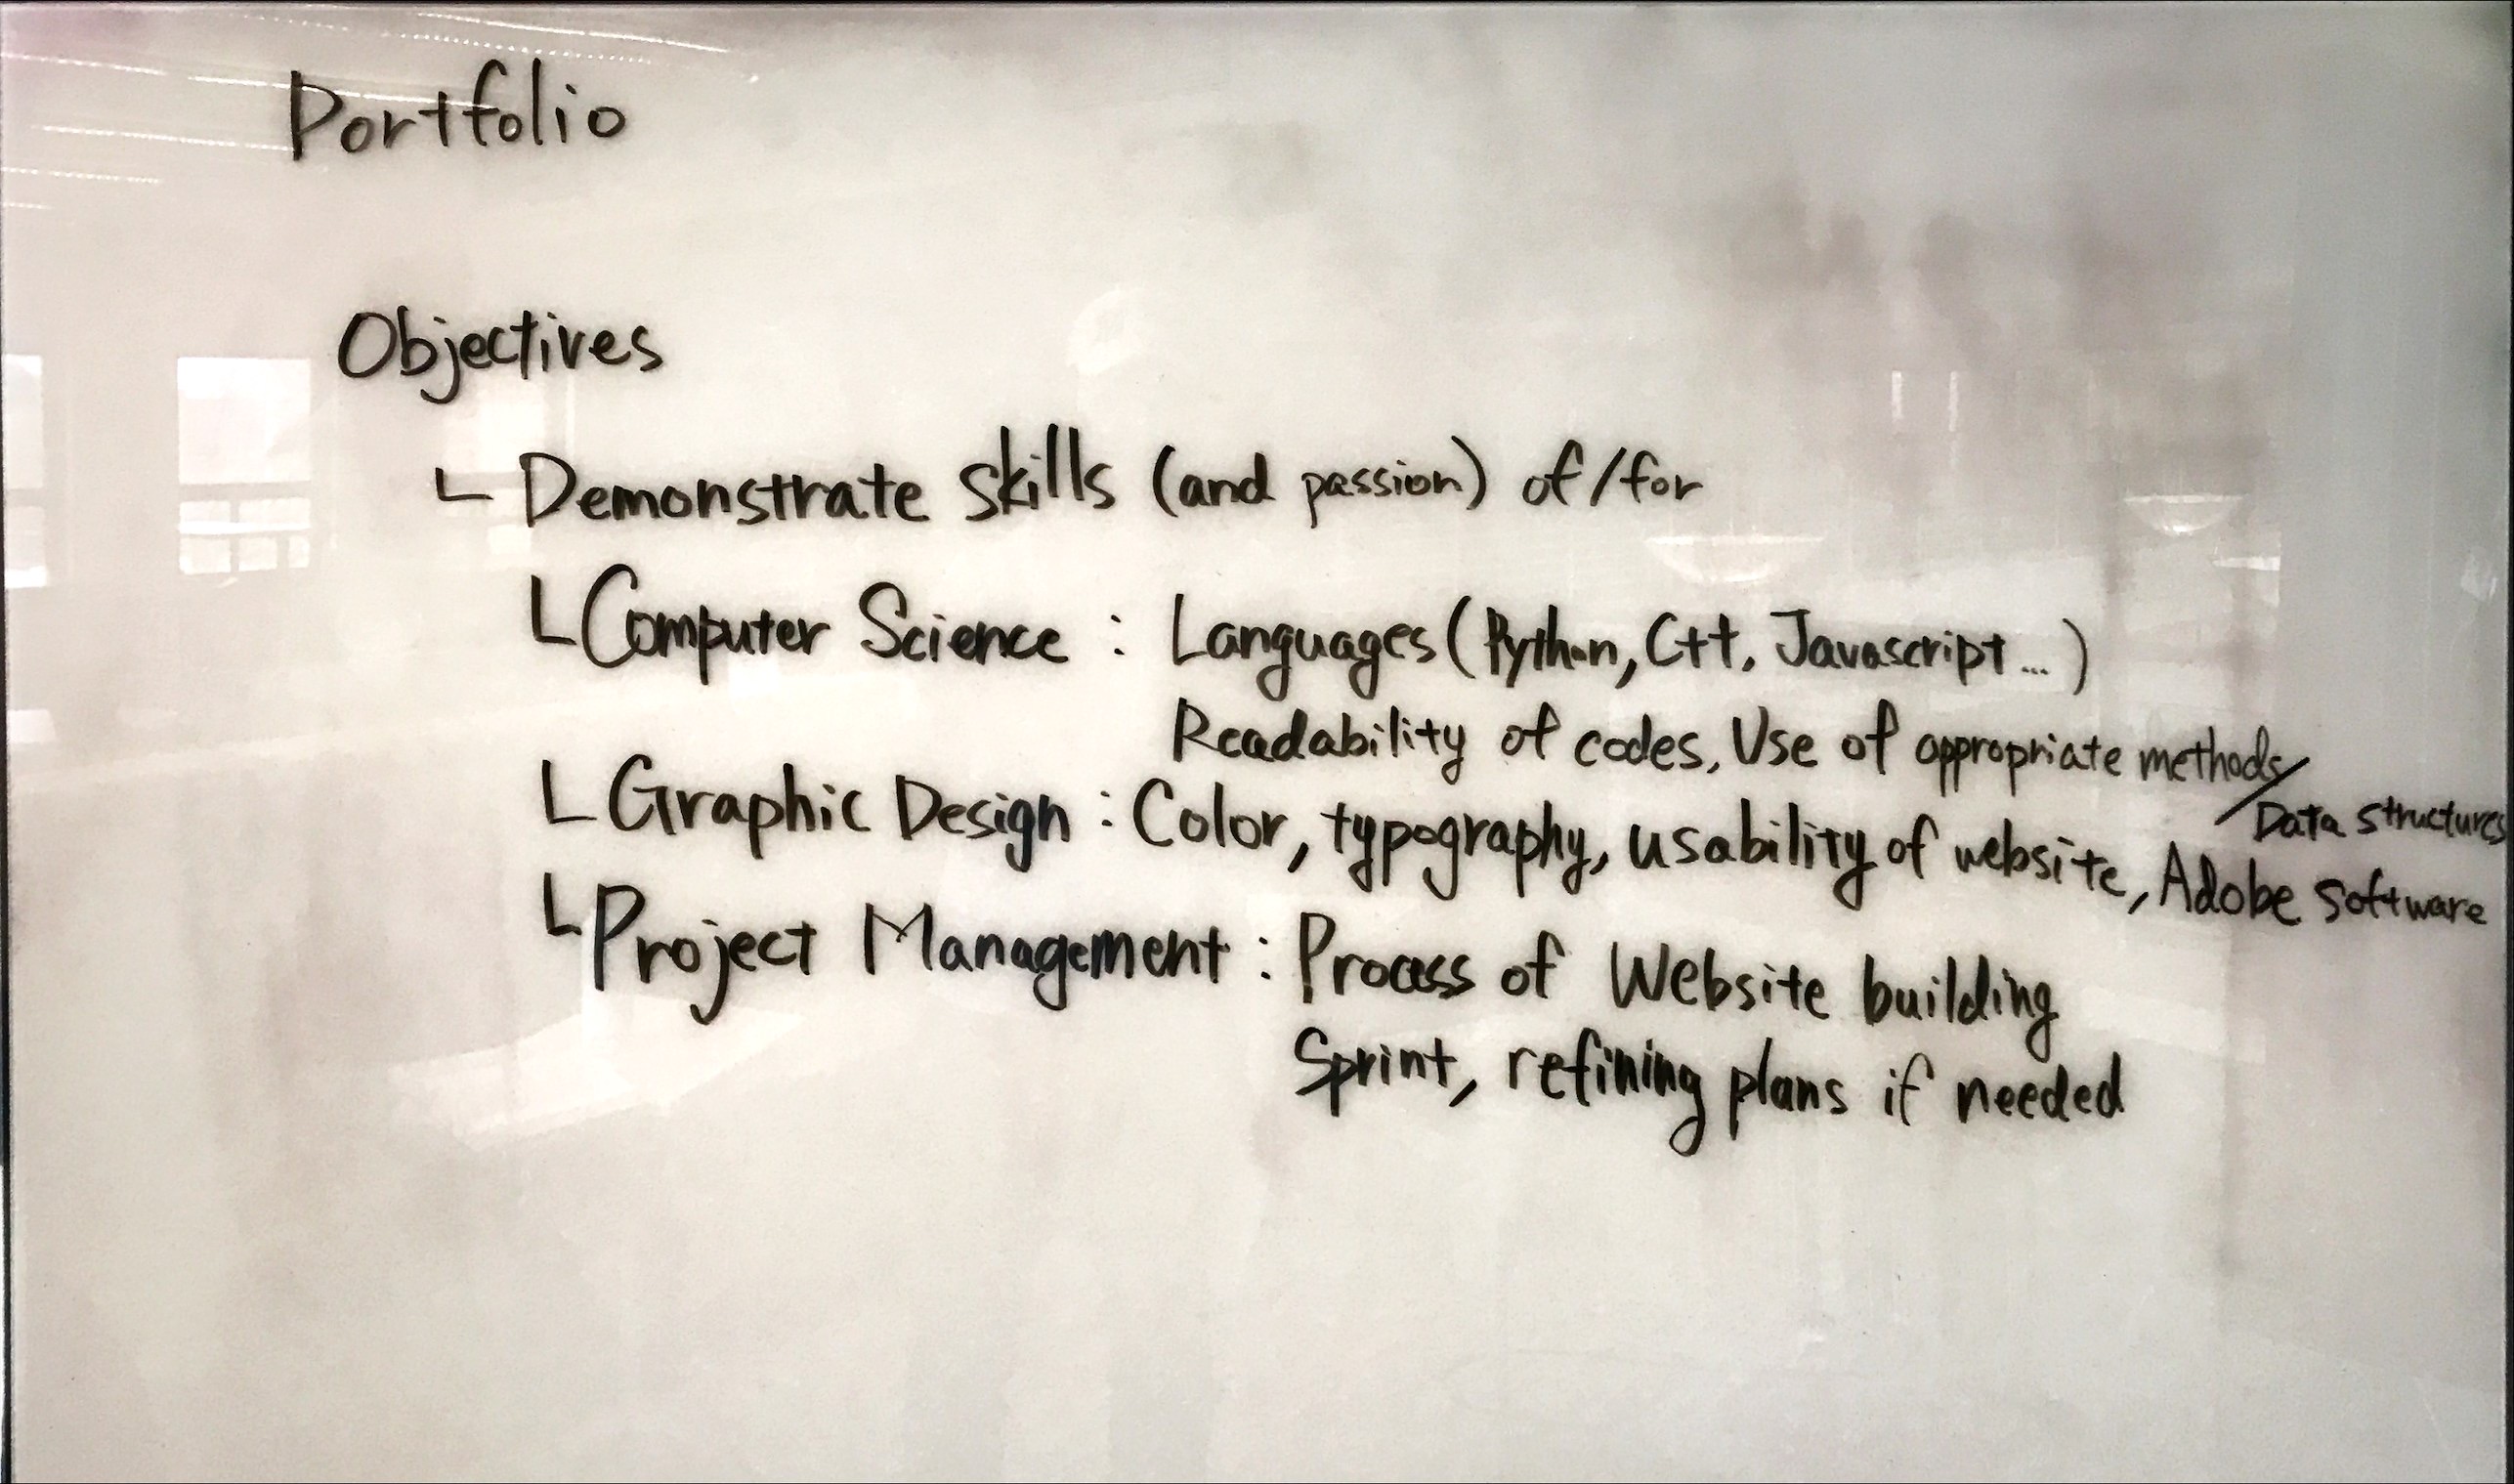 Portfolio
Objectives
└ Demonstrate skills (and passion) of/for
└ Computer Science : Languages (Python, C++, Javascript ... )
Readability of codes, Use of appropriate methods/
Data structures
└ Graphic Design : Color, typography, usability of website, Adobe software
└ Project Management : Process of Website building
Sprint, refining plans if needed